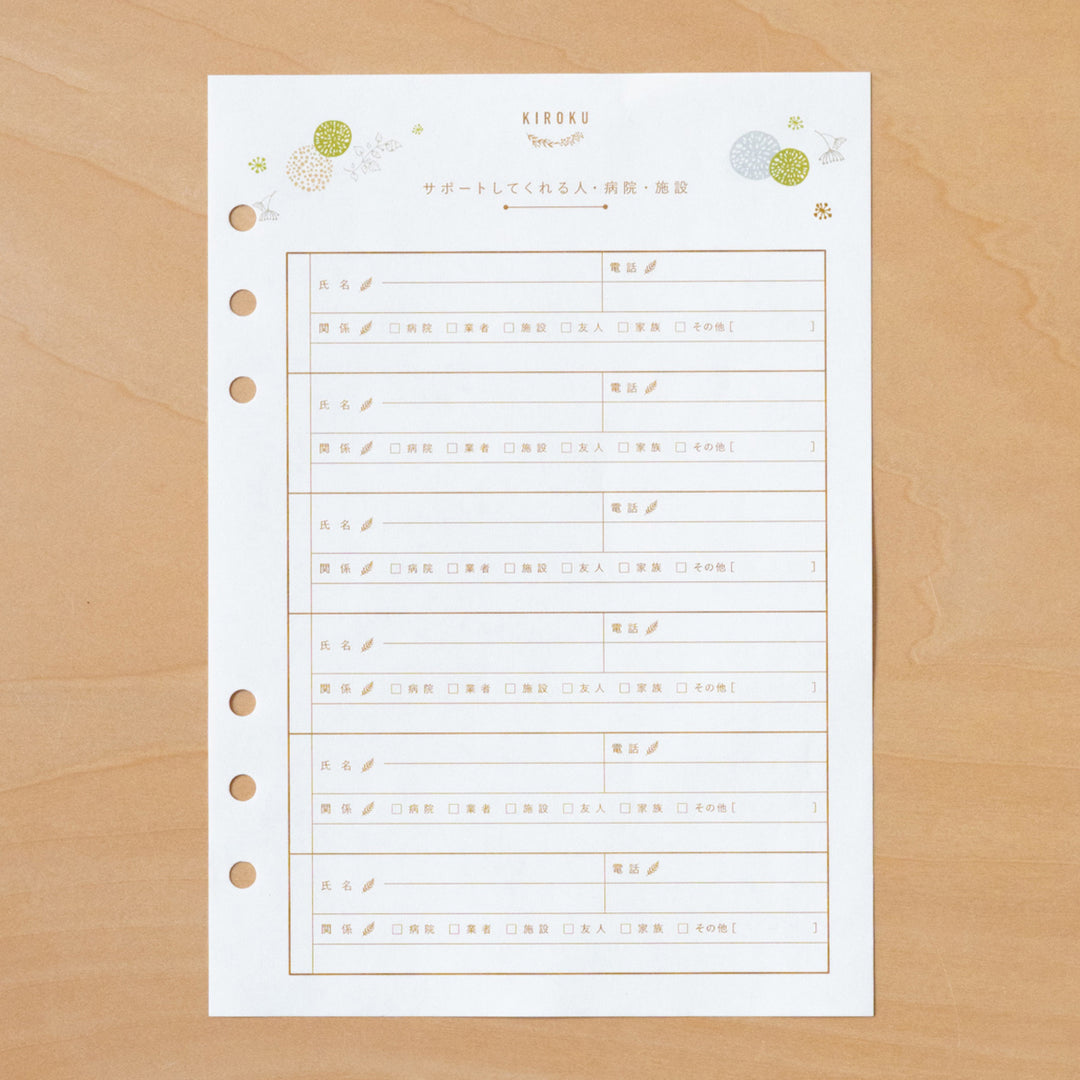 KIROKU
サポートしてくれる人・病院・施設
電話
氏名
関係 □ 病院 □ 業者 □ 施設 □ 友人 □ 家族 □ その他 [ ]
電話
氏名
関係 □ 病院 □ 業者 □ 施設 □ 友人 □ 家族 □ その他 [ ]
電話
氏名
関係 □ 病院 □ 業者 □ 施設 □ 友人 □ 家族 □ その他 [ ]
電話
氏名
関係 □ 病院 □ 業者 □ 施設 □ 友人 □ 家族 □ その他 [ ]
電話
氏名
関係 □ 病院 □ 業者 □ 施設 □ 友人 □ 家族 □ その他 [ ]
電話
氏名
関係 □ 病院 □ 業者 □ 施設 □ 友人 □ 家族 □ その他 [ ]